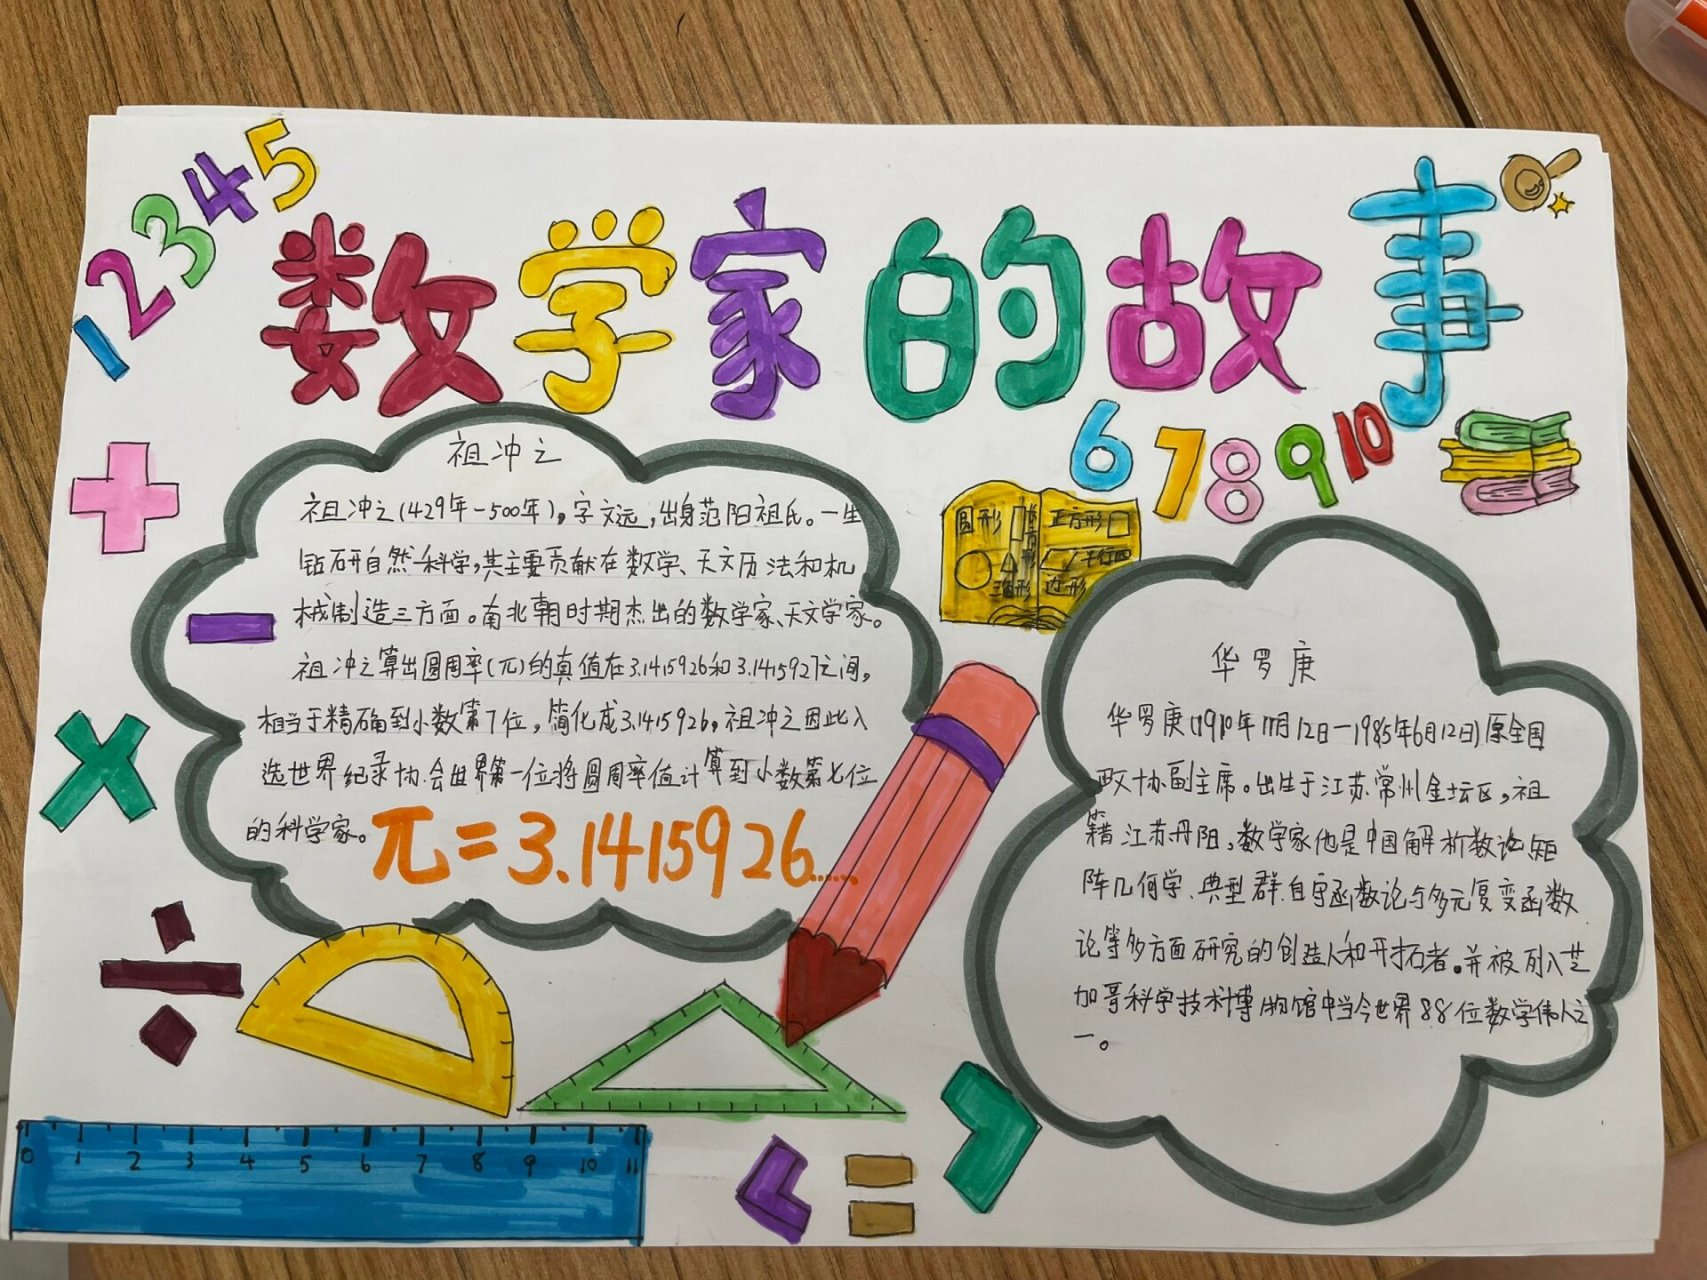 1 2 3 4 5
数学家的故事
6 7 8 9 10
祖冲之
祖冲之(429年-500年)，字文远，出身范阳祖氏。一生
钻研自然科学，其主要贡献在数学、天文历法和机
械制造三方面。南北朝时期杰出的数学家、天文学家。
祖冲之算出圆周率(π)的真值在3.1415926和3.1415927之间，
相当于精确到小数第7位，简化成3.1415926，祖冲之因此入
选世界纪录协会世界第一位将圆周率值计算到小数第七位
的科学家。
π=3.1415926......
圆形
长方形
三角形
正方形
平行四
边形
华罗庚
华罗庚(1910年11月12日—1985年6月12日)原全国
政协副主席。出生于江苏常州金坛区，祖
籍江苏丹阳，数学家他是中国解析数论矩
阵几何学、典型群、自守函数论与多元复变函数
论等多方面研究的创造人和开拓者。并被列入芝
加哥科学技术博物馆中当今世界88位数学伟人之
一。
0 1 2 3 4 5 6 7 8 9 10 11